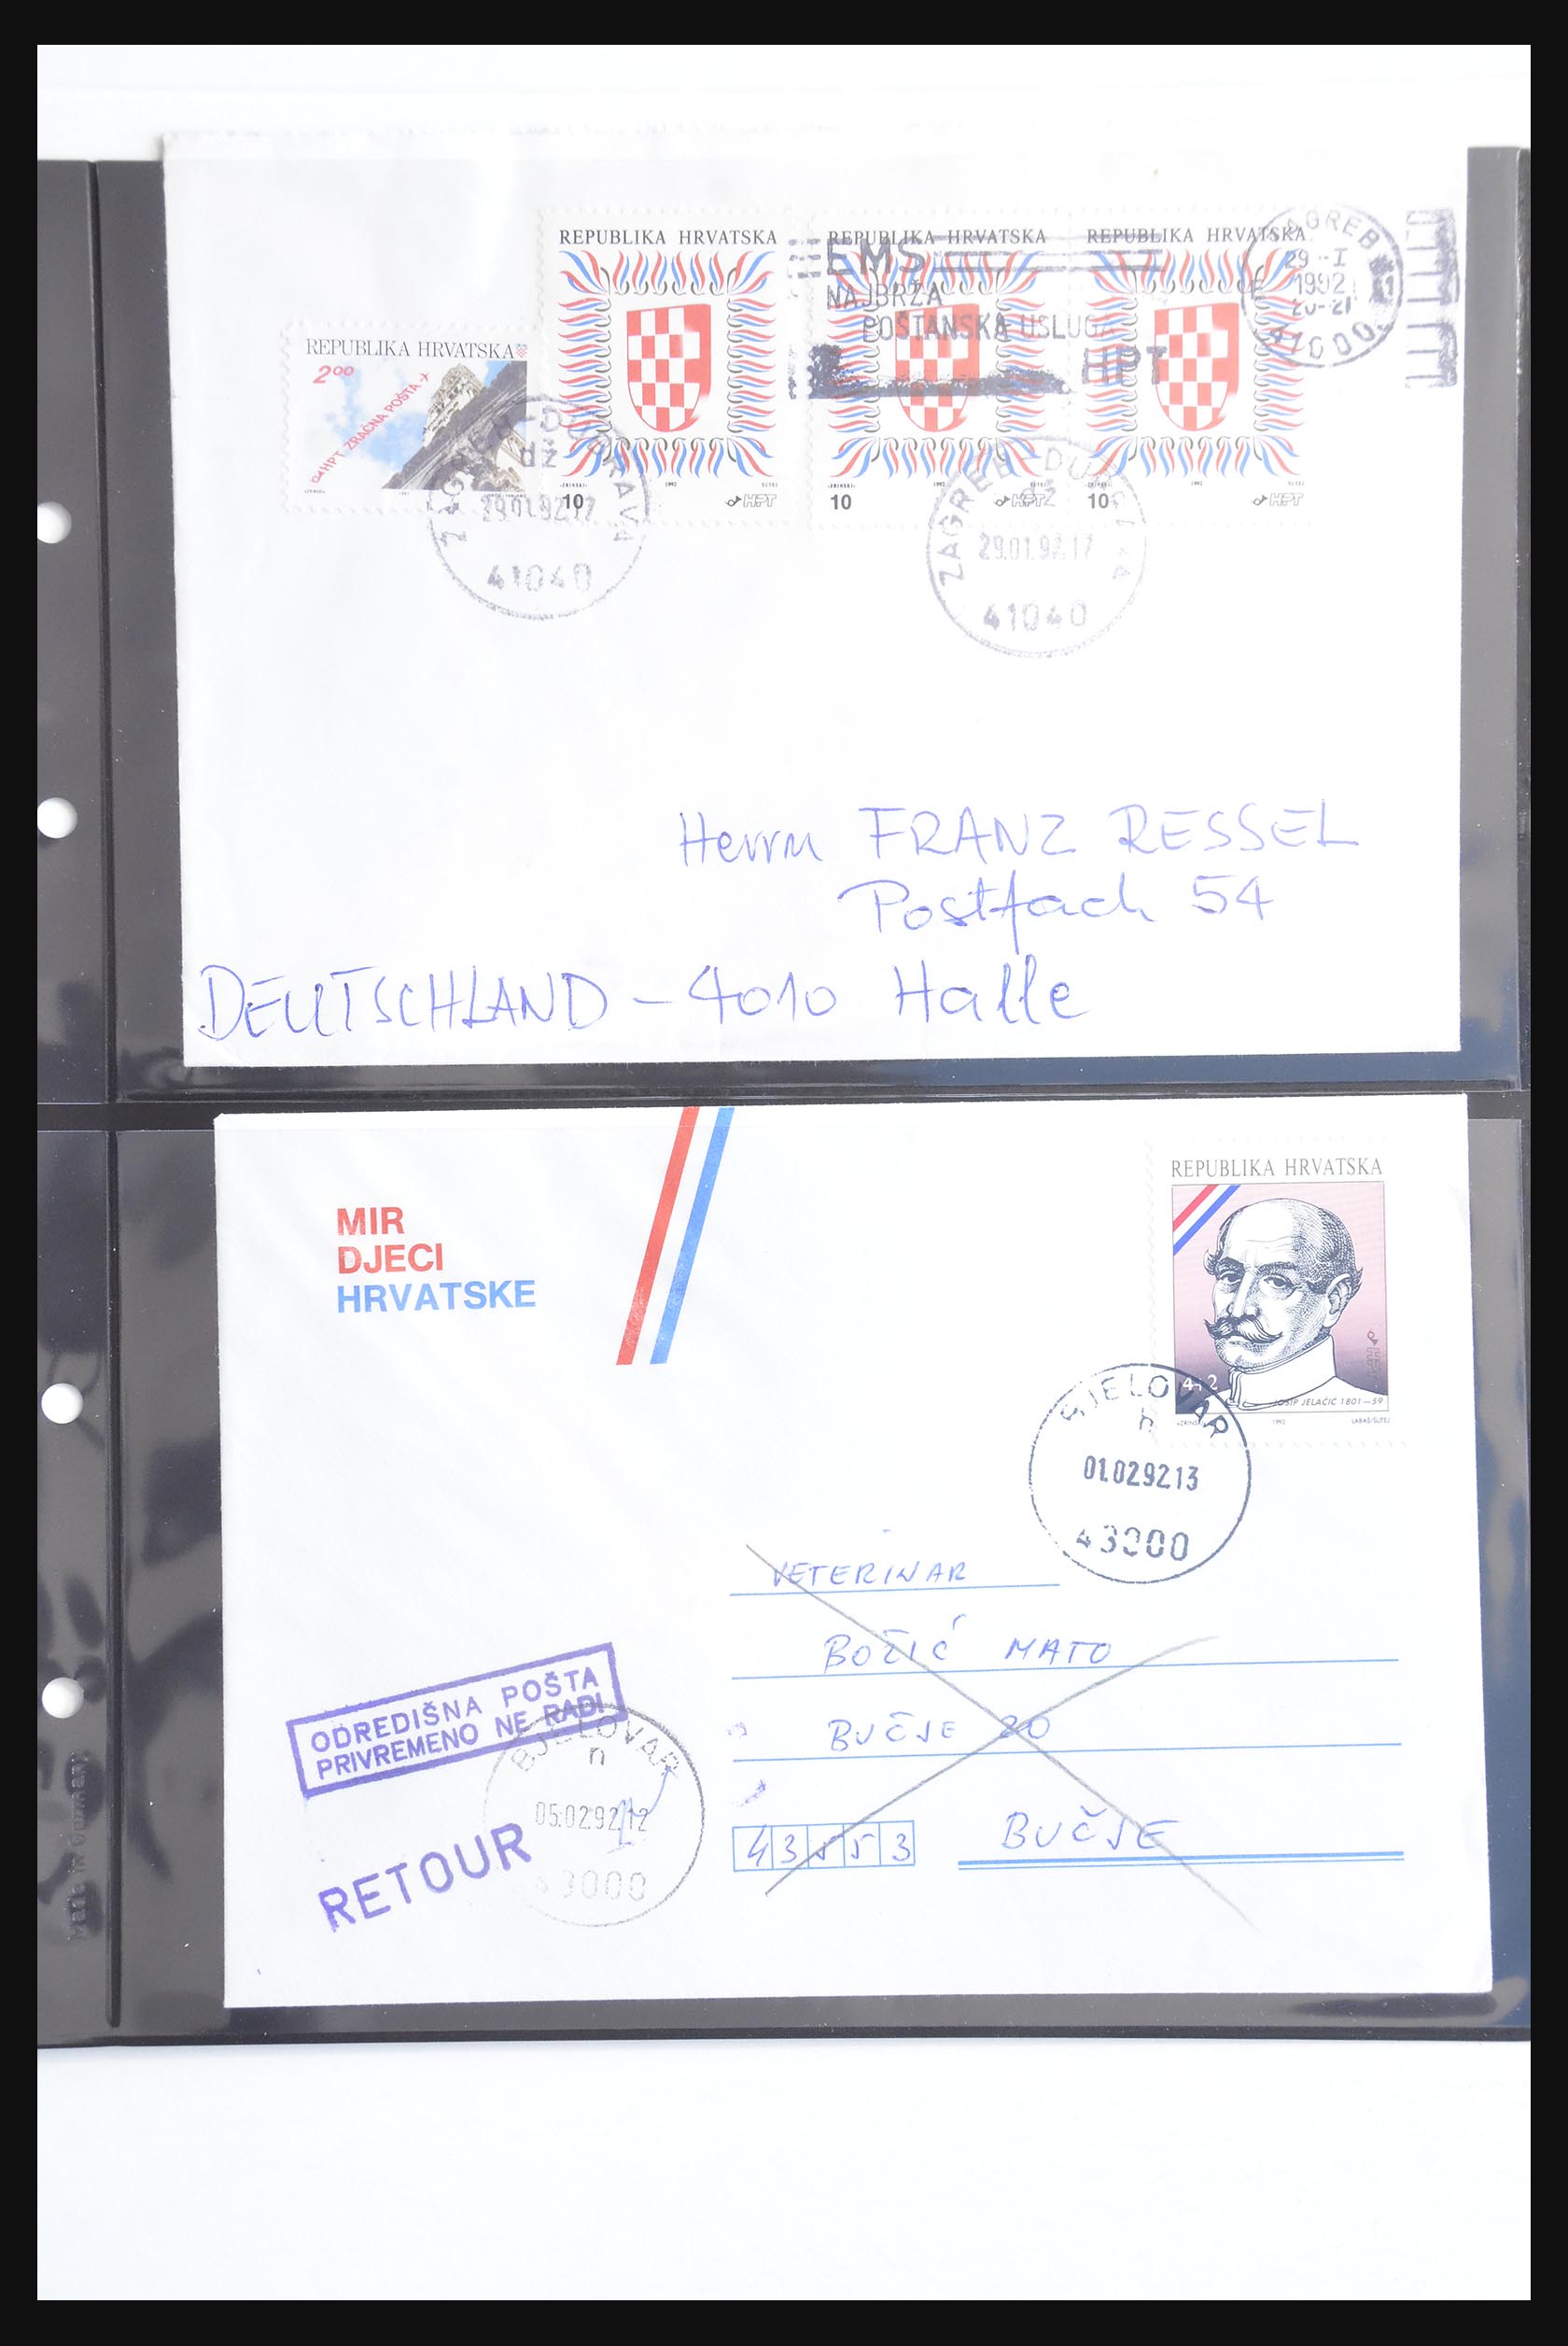 REPUBLIKA HRVATSKA
2⁰⁰
HPT ZRAČNA POŠTA
REPUBLIKA HRVATSKA
•ZRINSKI• 1992 ŠUTEJ
10 HPT
REPUBLIKA HRVATSKA
1992
10 HPT
REPUBLIKA HRVATSKA
•ZRINSKI• 1992 ŠUTEJ
10 HPT
EMS
NAJBRŽA
POŠTANSKA USLUGA
HPT
ZAGREB
29 -I
1992
20-21
41000
ZAGREB-DUBRAVA
dž
29.01.92.17
41040
ZAGREB-DUBRAVA
dž
29.01.92.17
41040
Herrn FRANZ RESSEL
Postfach 54
DEUTSCHLAND - 4010 Halle
MIR
DJECI
HRVATSKE
REPUBLIKA HRVATSKA
HPT
4+2
JOSIP JELAČIĆ 1801—59
1992 LABAŠ/ŠUTEJ
BJELOVAR
h
01.02.92.13
43000
VETERINAR
BOŽIĆ MATO
BUČJE 20
43553 BUČJE
ODREDIŠNA POŠTA
PRIVREMENO NE RADI
BJELOVAR
n
05.02.92.12
43000
RETOUR
Made in Germany